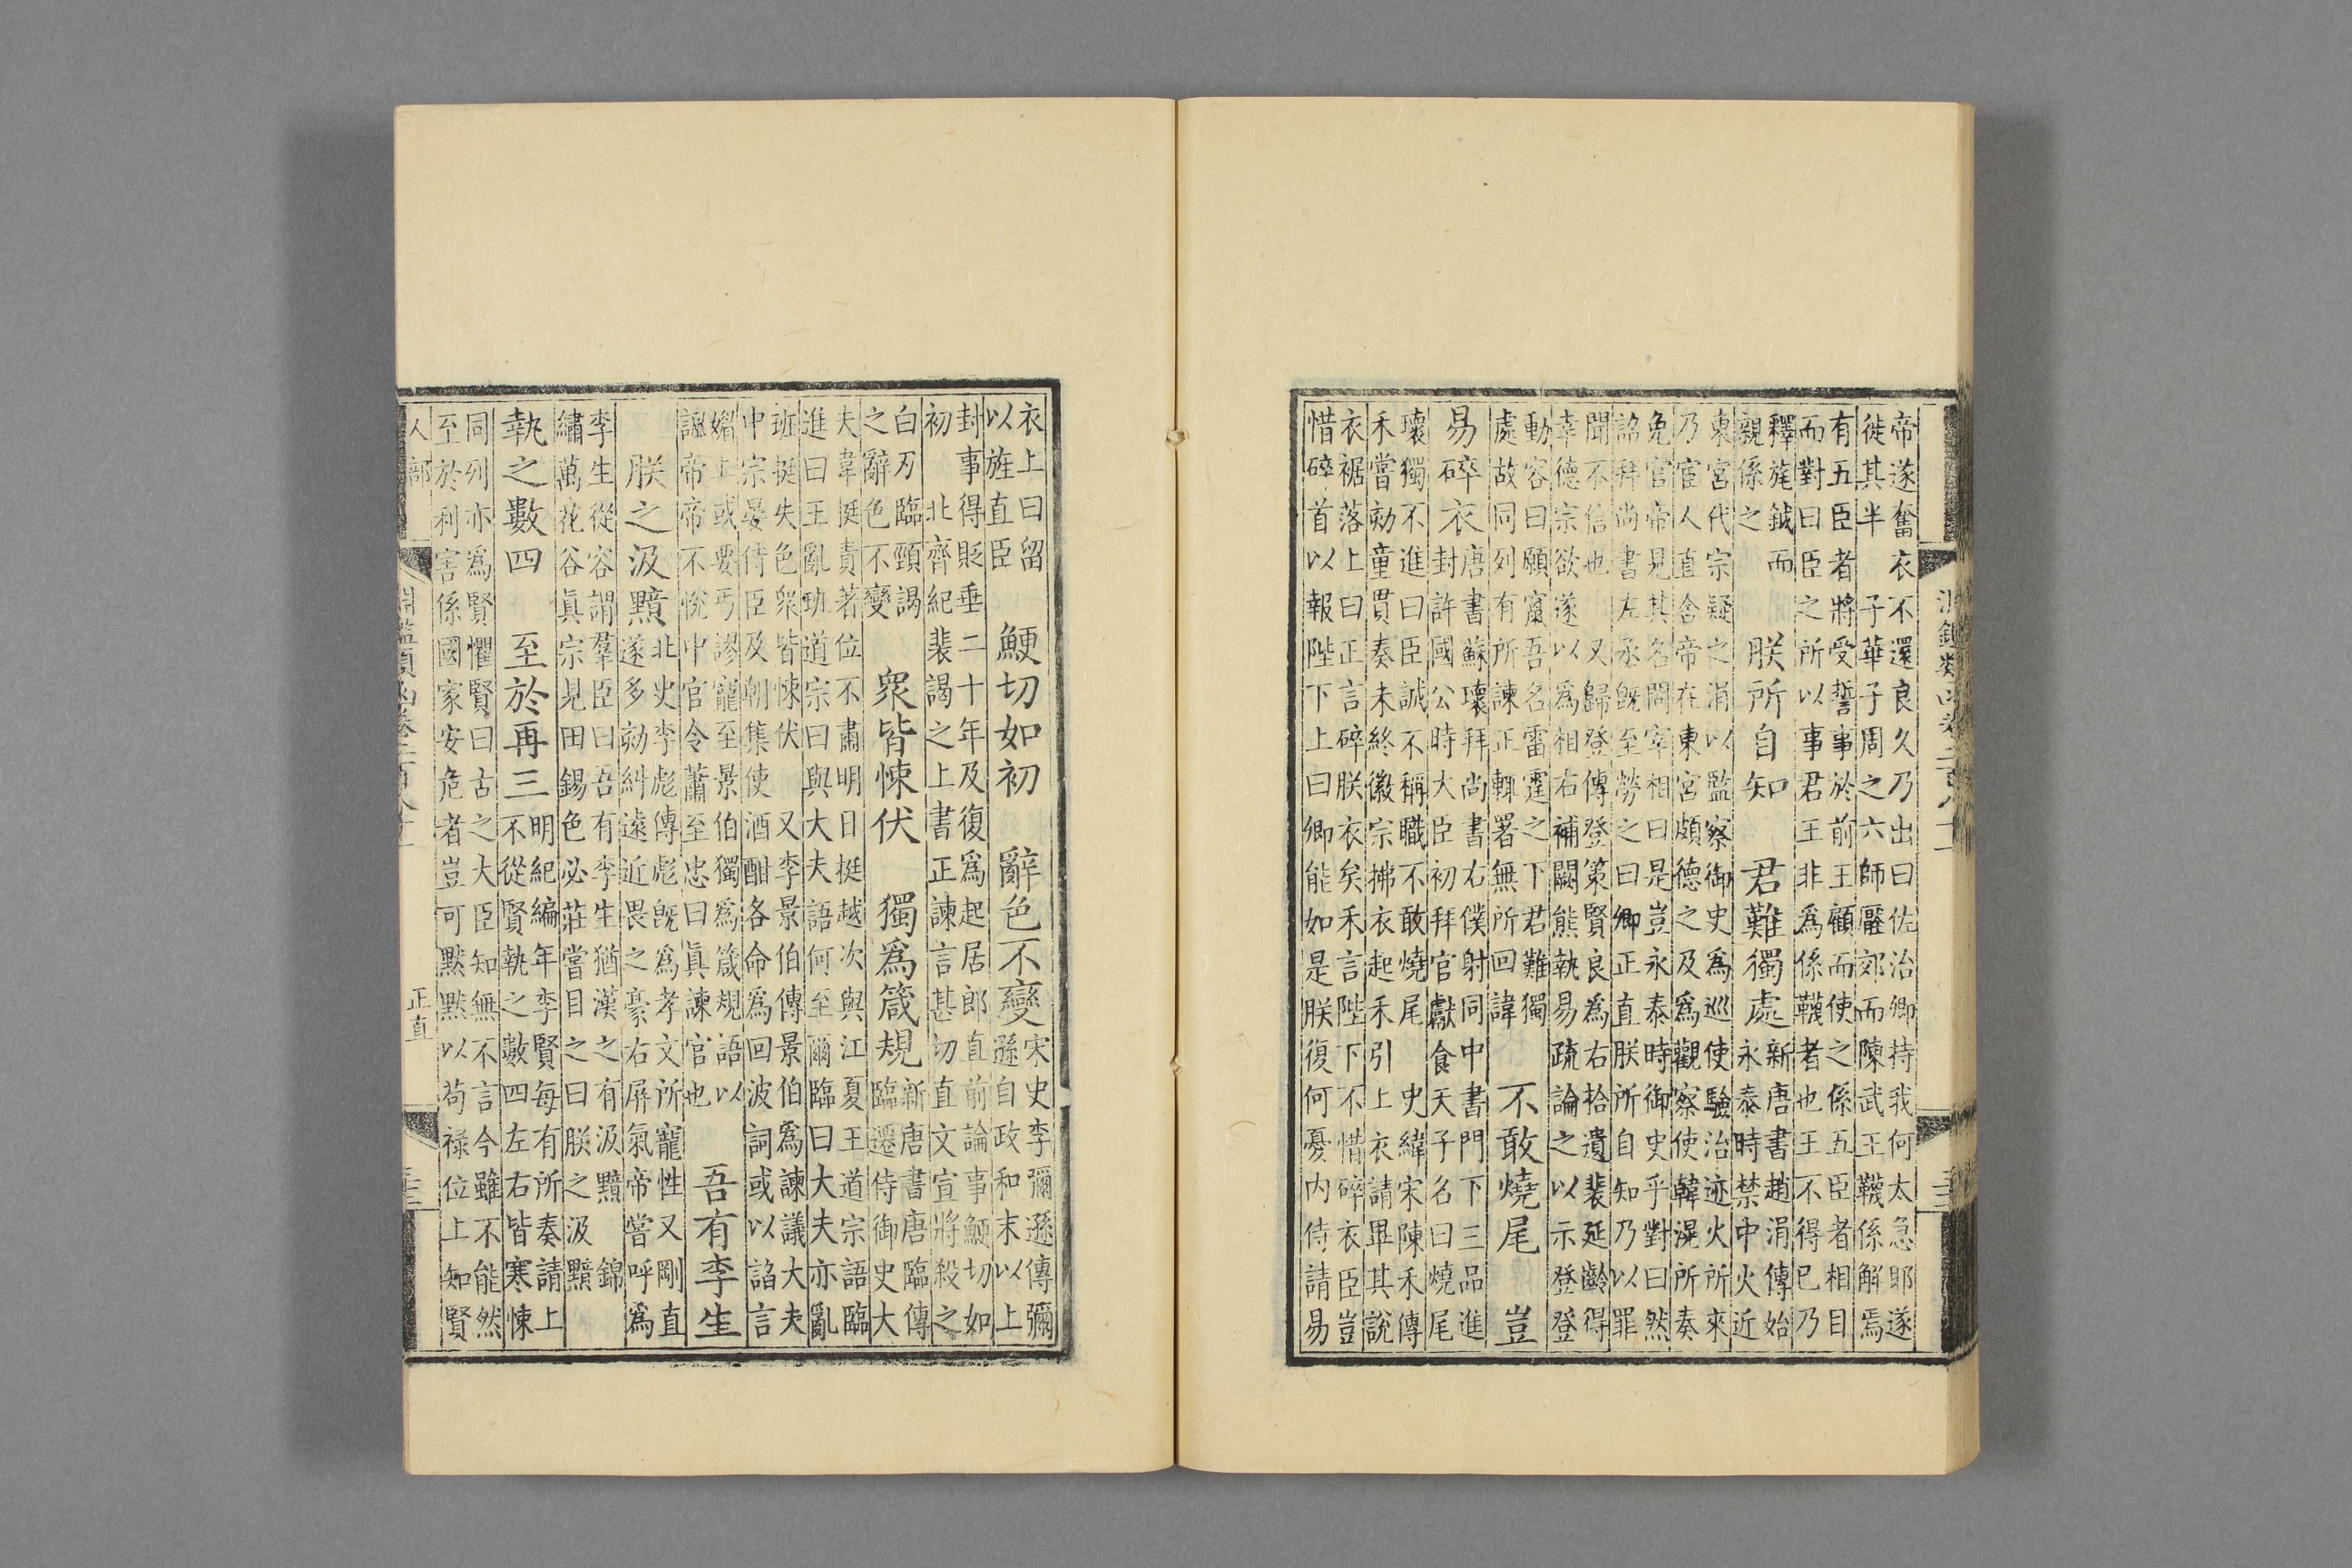 帝遂奮衣不還良久乃出曰佐治卿持我何太急耶遂
徙其半　子華子周之六師壓郊而陳武王韈係解焉
有五臣者將受誓事於前王顧而使之係五臣者相目
而對曰臣之所以事君王非爲係韈者也王不得已乃
釋旄鉞而
親係之
朕所自知　君難獨處
新唐書趙涓傳始
永泰時禁中火近
東宮代宗疑之涓以監察御史爲巡使驗治迹火所來
乃宦人直舍帝在東宮頗德之及爲觀察使韓滉所奏
免官帝見其名問宰相曰是豈永泰時御史乎對曰然
詔拜尚書左丞旣至勞之曰卿正直朕所自知乃以罪
聞不信也　又歸登傳登策賢良爲右拾遺裴延齡得
幸德宗欲遂以爲相右補闕熊執易疏論之以示登登
動容曰願竄吾名雷霆之下君難獨
處故同列有所諫正輒署無所回諱
不敢燒尾　豈
易碎衣
唐書蘇瓌拜尚書右僕射同中書門下三品進
封許國公時大臣初拜官獻食天子名曰燒尾
瓌獨不進曰臣誠不稱職不敢燒尾　史緯宋陳禾傳
禾嘗劾童貫奏未終徽宗拂衣起禾引上衣請畢其說
衣裾落上曰正言碎朕衣矣禾言陛下不惜碎衣臣豈
惜碎首以報陛下上曰卿能如是朕復何憂内侍請易
衣上曰留
以旌直臣
鯁切如初　辭色不變
宋史李彌遜傳彌
遜自政和末以上
封事得貶垂二十年及復爲起居郎直前論事鯁切如
初　北齊紀裴謁之上書正諫言甚切直文宣將殺之
白刃臨頸謁
之辭色不變
衆皆悚伏　獨爲箴規
新唐書唐臨傳
臨遷侍御史大
夫韋挺責著位不肅明日挺越次與江夏王道宗語臨
進曰王亂班道宗曰與大夫語何至爾臨曰大夫亦亂
班挺失色衆皆悚伏　又李景伯傳景伯爲諫議大夫
中宗宴侍臣及朝集使酒酣各命爲回波詞或以諂言
媚上或要丐謬寵至景伯獨爲箴規語以
諷帝帝不悅中官令蕭至忠曰眞諫官也
吾有李生
朕之汲黯
北史李彪傳彪旣爲孝文所寵性又剛直
遂多劾糾遠近畏之豪右屏氣帝嘗呼爲
李生從容謂羣臣曰吾有李生猶漢之有汲黯　錦
繡萬花谷眞宗見田錫色必莊嘗目之曰朕之汲黯
執之數四　至於再三
明紀編年李賢每有所奏請上
不從賢執之數四左右皆寒悚
同列亦爲賢懼賢曰古之大臣知無不言今雖不能然
至於利害係國家安危者豈可默默以苟祿位上知賢
人部
正直